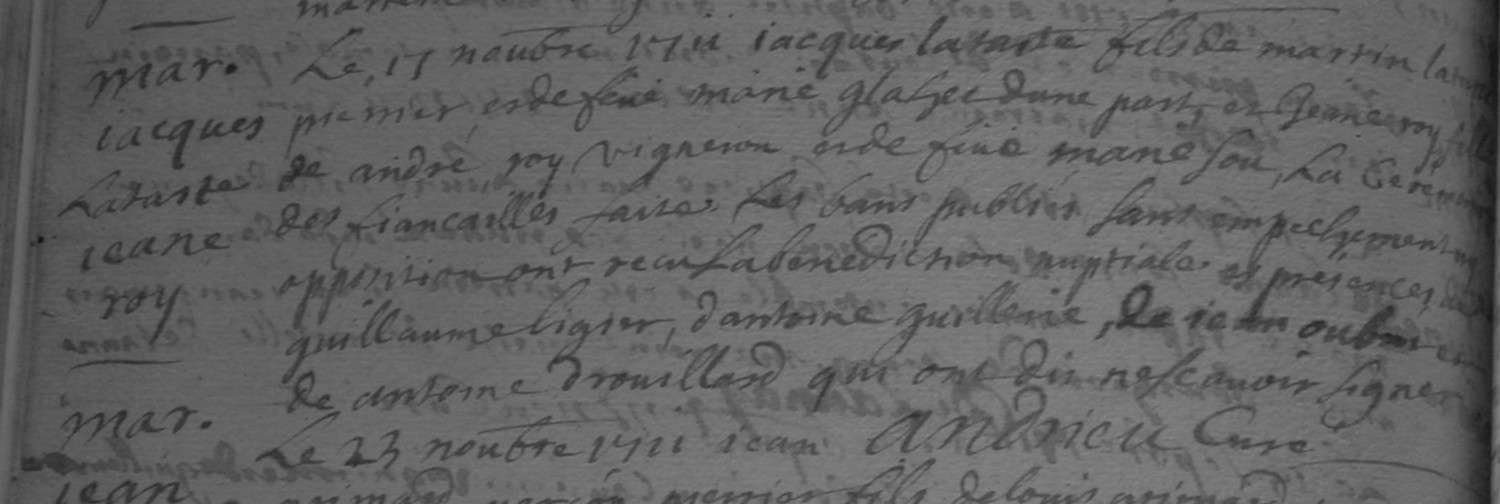 mar.
iacques
Lataste
ieane
roy
Le 17 noubre 1711 iacques lataste fils de martin
premier et de feüe marie d'une part, et Jeane roy fille
de andré roy vigneron et de feüe marie sou, La
des fiancailles faite Les bans publiés sans empechement ny
opposition ont recu La benediction nuptiale es presences de
guillaume ligier, d'antoine guillerie, de iean
de antoine Drouillard qui ont dit ne scavoir signer
Andrieu Curé
mar.
iean
Le 23 noubre 1711 iean
premier fils de louis